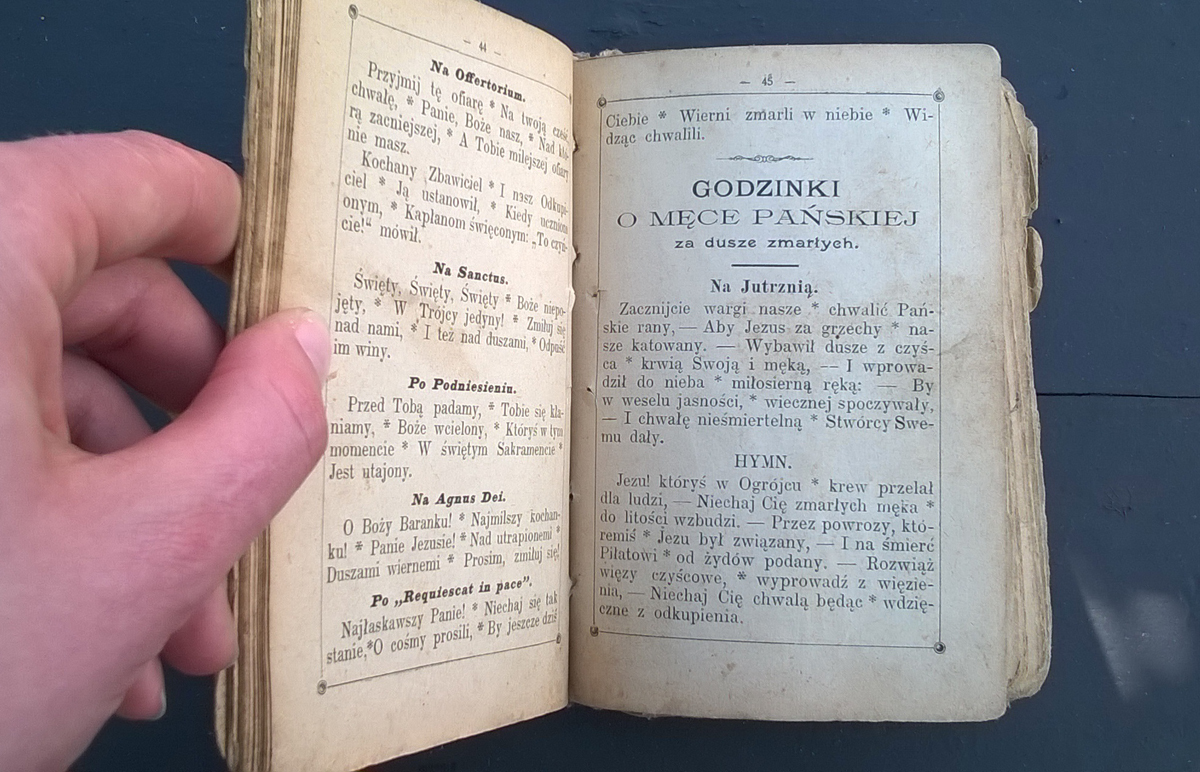 — 44 —
Na Offertorium.
Przyjmij tę ofiarę * Na twoją cześć
chwałę, * Panie, Boże nasz, * Nad któ-
rą zacniejszej, * A Tobie milejszej ofiary
nie masz.
Kochany Zbawiciel * I nasz Odkupi-
ciel * Ją ustanowił, * Kiedy uczniom
onym, * Kapłanom święconym: „To czyń-
cie!“ mówił.
Na Sanctus.
Święty, Święty, Święty * Boże niepo-
jęty, * W Trójcy jedyny! * Zmiłuj się
nad nami, * I też nad duszami, * Odpuść
im winy.
Po Podniesieniu.
Przed Tobą padamy, * Tobie się kła-
niamy, * Boże wcielony, * Któryś w tym
momencie * W świętym Sakramencie *
Jest utajony.
Na Agnus Dei.
O Boży Baranku! * Najmilszy kochan-
ku! * Panie Jezusie! * Nad utrapionemi *
Duszami wiernemi * Prosim, zmiłuj się!
Po „Requiescat in pace”.
Najłaskawszy Panie! * Niechaj się tak
stanie,*O cośmy prosili, * By jeszcze dziś
— 45 —
Ciebie * Wierni zmarli w niebie * Wi-
dząc chwalili.
GODZINKI
O MĘCE PAŃSKIEJ
za dusze zmarłych.
Na Jutrznią.
Zacznijcie wargi nasze * chwalić Pań-
skie rany, — Aby Jezus za grzechy * na-
sze katowany. — Wybawił dusze z czyś-
ca * krwią Swoją i męką, — I wprowa-
dził do nieba * miłosierną ręką: — By
w weselu jasności, * wiecznej spoczywały,
— I chwałę nieśmiertelną * Stwórcy Swe-
mu dały.
HYMN.
Jezu! któryś w Ogrójcu * krew przelał
dla ludzi, — Niechaj Cię zmarłych męka *
do litości wzbudzi. — Przez powrozy, któ-
remiś * Jezu był związany, — I na śmierć
Piłatowi * od żydów podany. — Rozwiąż
więzy czyścowe, * wyprowadź z więzie-
nia, — Niechaj Cię chwalą będąc * wdzię-
czne z odkupienia.